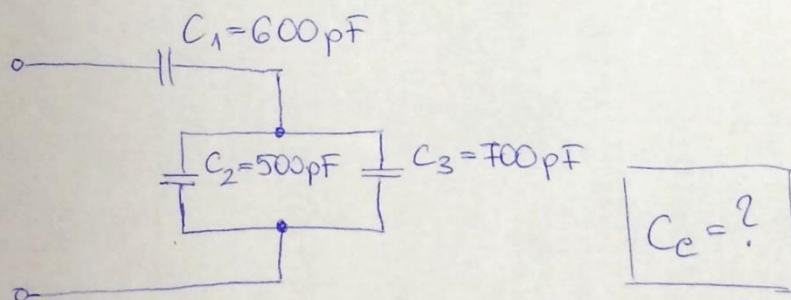 C₁=600pF
C₂=500pF
C₃=700pF
Cₑ=?